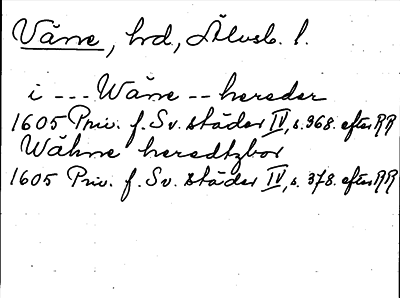 Väne, hrd, Älvsb. l.
i --- Wäne -- hereder
1605 Priv. f. Sv. städer IV, s. 368. efter RR
Wähne heredtzbor
1605 Priv. f. Sv. städer IV, s. 378. efter RR